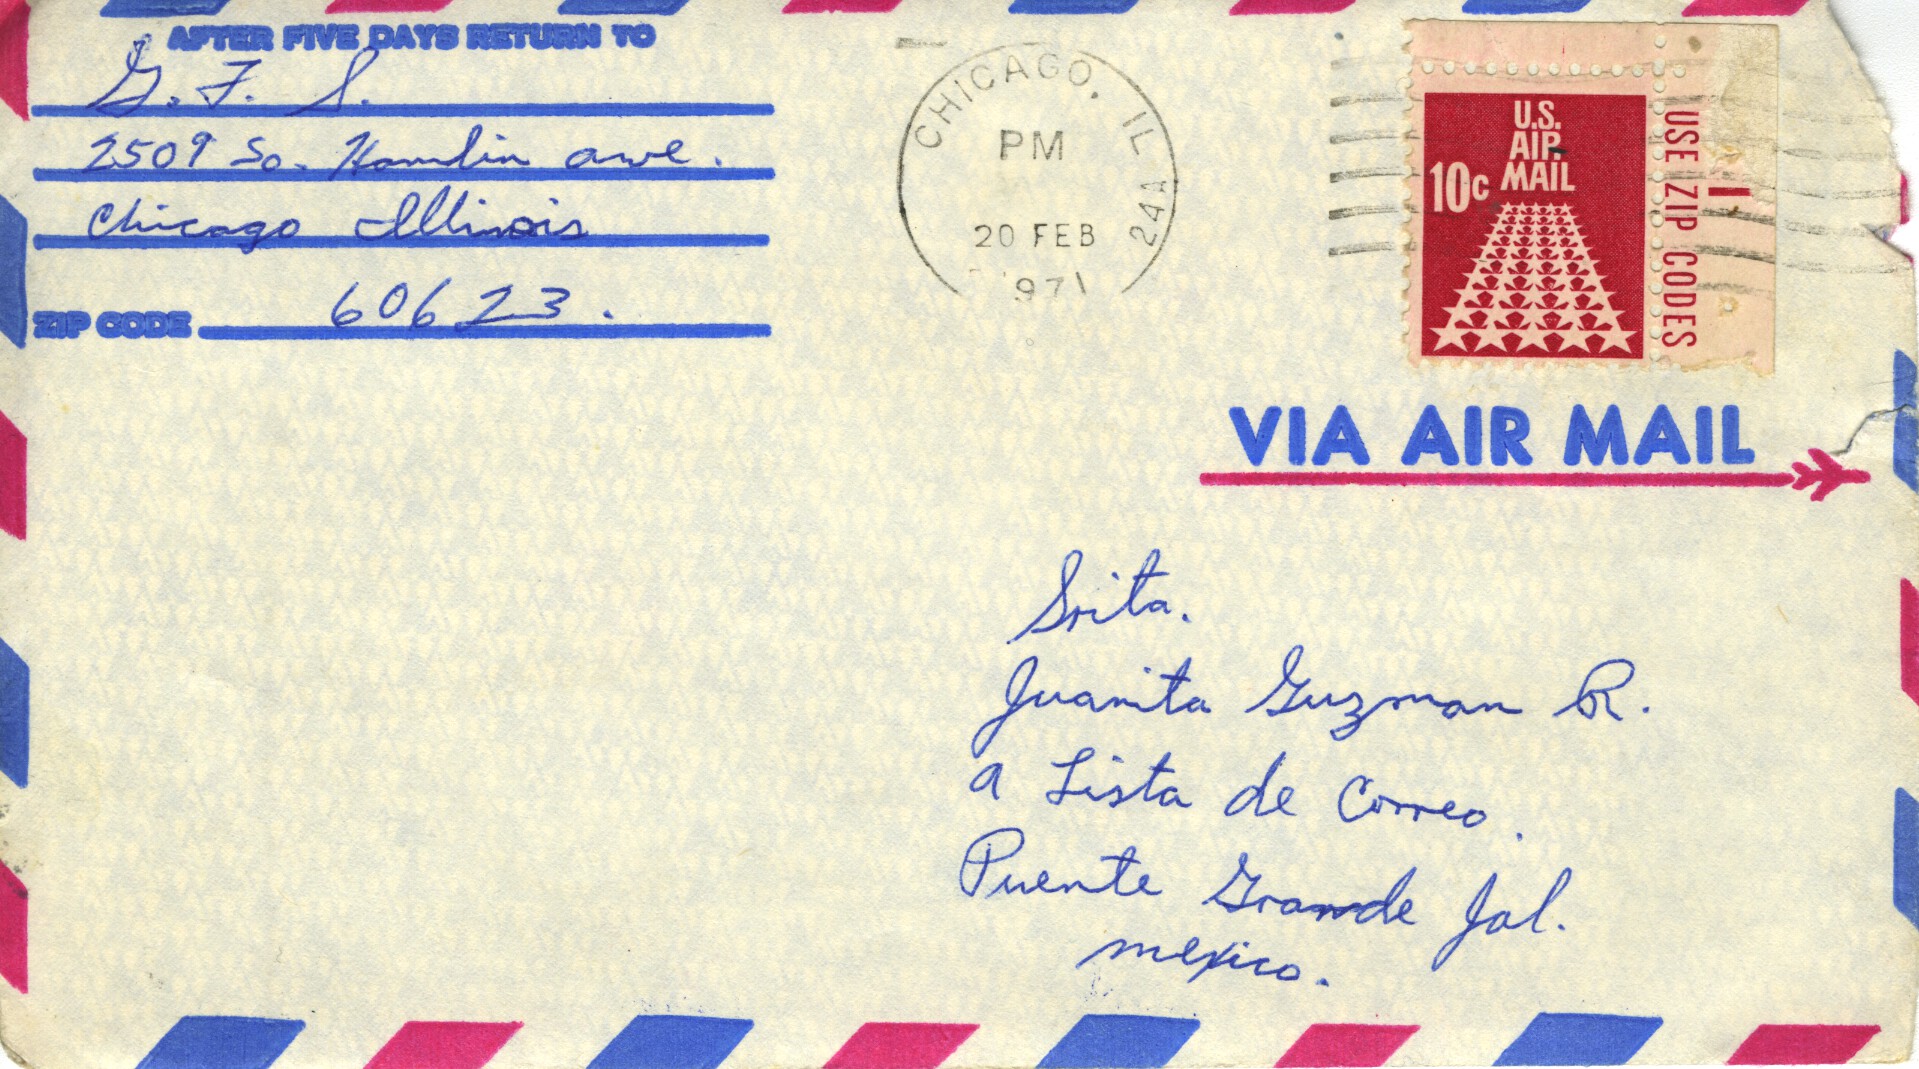 AFTER FIVE DAYS RETURN TO
G. F. S.
2509 So. Hamlin ave.
Chicago Illinois
ZIP CODE 60623.
CHICAGO, IL 24A
PM
20 FEB
1971
U.S.
AIR
MAIL
10c
USE ZIP CODES
VIA AIR MAIL
Srita.
Juanita Guzman R.
a Lista de Correo.
Puente Grande Jal.
mexico.